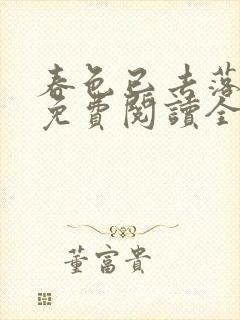 春色已去落
免費閱讀全
董富貴